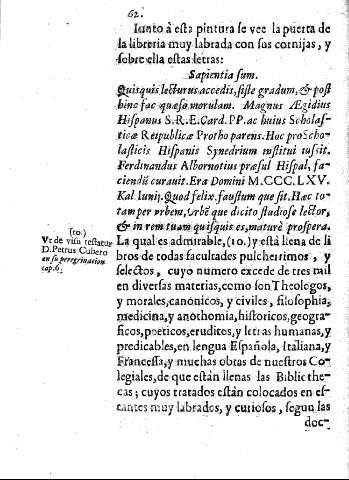 62.
Iunto à esta pintura se vee la puerta de
la libreria muy labrada con sus cornijas, y
sobre ella estas letras:
Sapientia sum.
Quisquis lecturus accedis, siste gradum, & post
hinc fac quæso morulam. Magnus Ægidius
Hispanus S. R. E. Card. PP. ac huius Scholas-
ticæ Reipublicæ Prothoparens. Hoc proScho-
lasticis Hispanis Synedrium institui iussit.
Ferdinandus Albornotius præsul Hispal, fa-
ciendũ curavit. Era Domini M.CCC.LXV.
Kal Iunij. Quod felix, faustum que sit. Hæc to-
tam per urbem, Urbẽ que dicito studiose lector,
& in rem tuam quisquis es, maturè prospera.
La qual es admirable, (10.) y está llena de li
bros de todas facultades pulcherrimos, y
selectos, cuyo numero excede de tres mil
en diversas materias, como son Theologos,
y morales, canónicos, y civiles, filosophia,
medicina, y anothomia, historicos, geogra-
ficos, poeticos, eruditos, y letras humanas, y
predicables, en lengua Española, Italiana, y
Francessa, y muchas obras de nuestros Co-
legiales, de que están llenas las Bibliothe-
cas; cuyos tratados están colocados en es-
tantes muy labrados, y curiosos, segun las
doc-
(10.)
Vt de visu testatur
D. Petrus Cubero
en su peregrinacion
cap. 6.